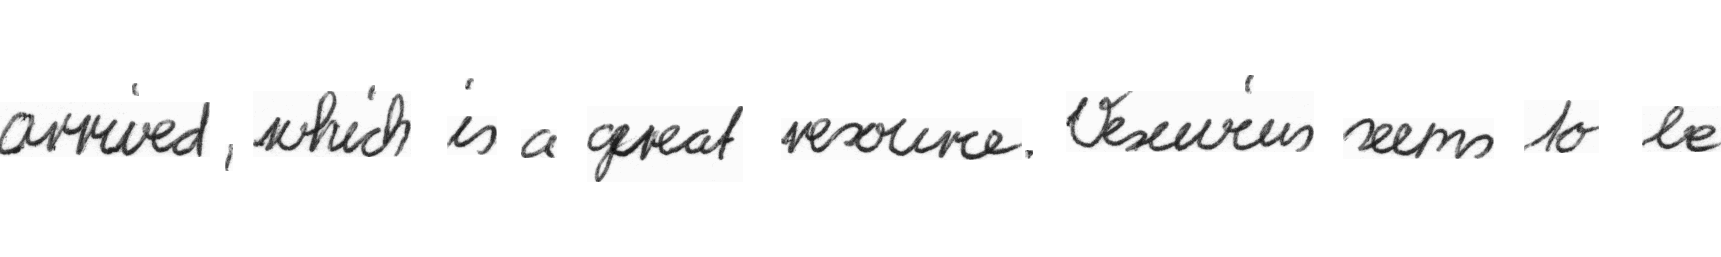 arrived, which is a great resource. Vesuvius seems to be